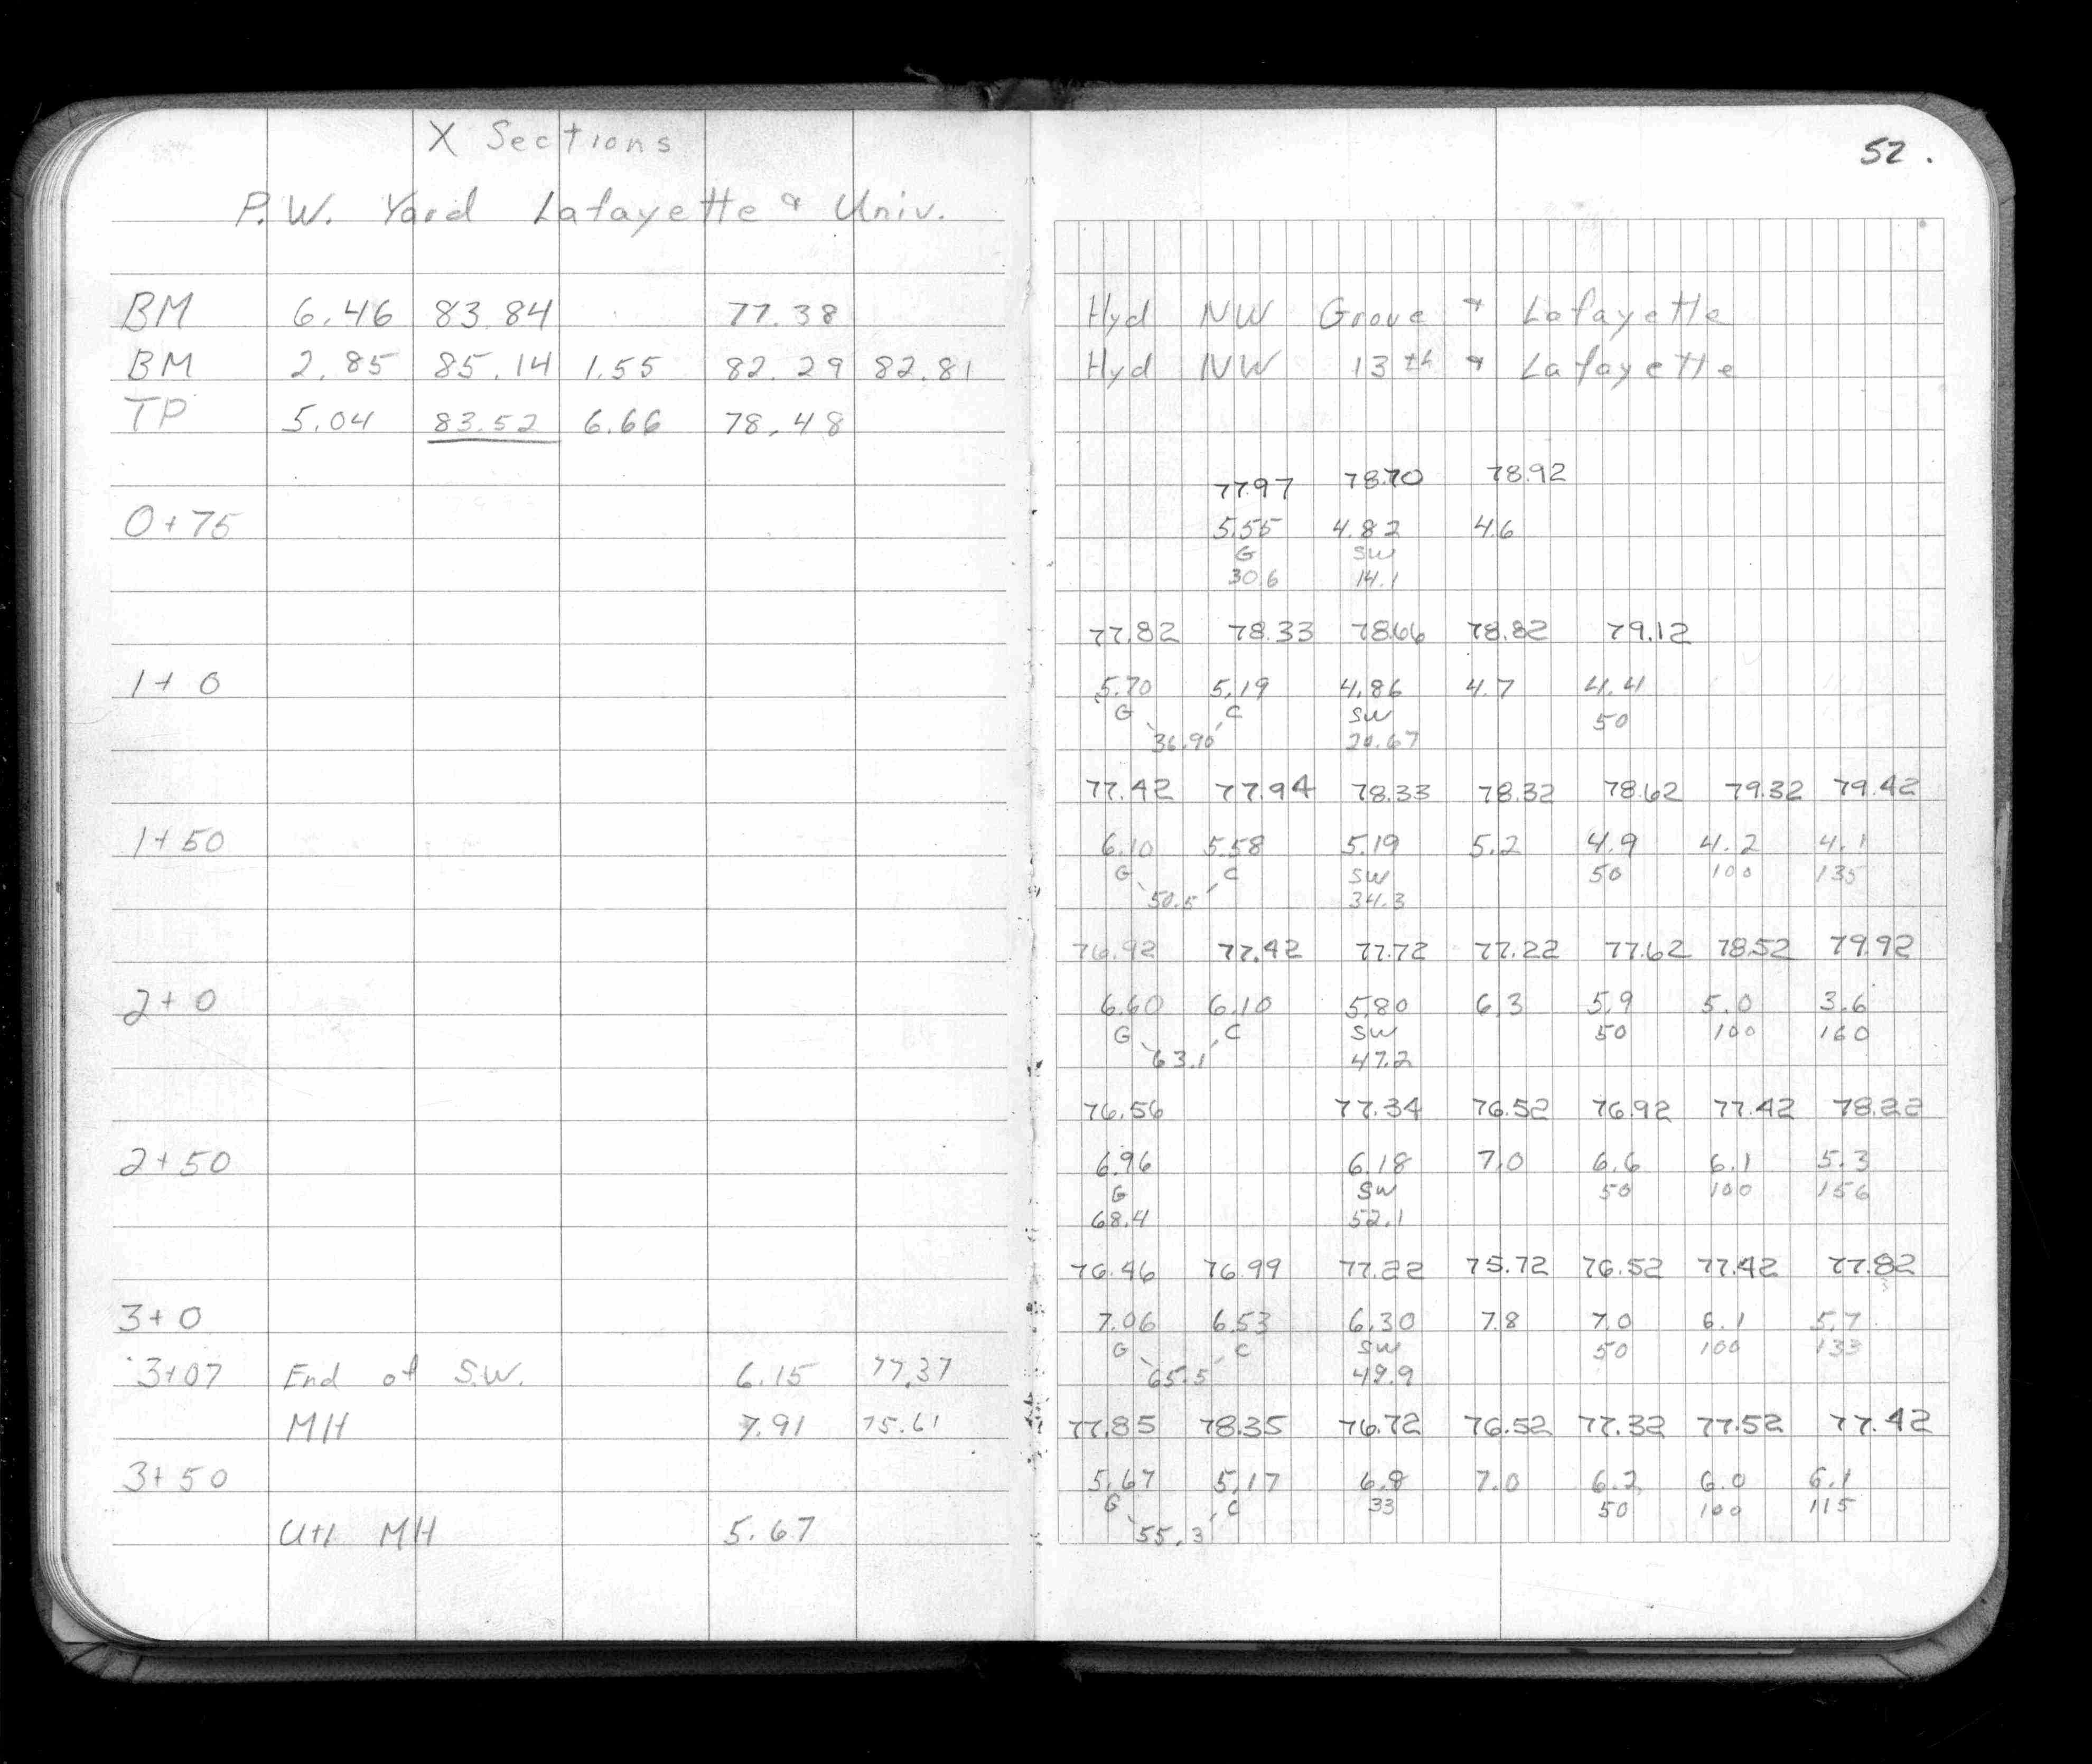 X Sections
P.W. Yard Lafayette & Univ.
BM 6.46 83.84 77.38
BM 2.85 85.14 1.55 82.29 82.81
TP 5.04 83.52 6.66 78.48
0+75
1+0
1+50
2+0
2+50
3+0
3+07 End of S.W. 6.15 77.37
MH 7.91 75.61
3+50
Util MH 5.67
52.
Hyd NW Grove & Lafayette
Hyd NW 13th & Lafayette
77.97 78.70 78.92
5.55 4.82 4.6
G SW
30.6 14.1
77.82 78.33 78.66 78.82 79.12
5.70 5.19 4.86 4.7 4.4
G C SW 50
36.90 20.67
77.42 77.94 78.33 78.32 78.62 79.32 79.42
6.10 5.58 5.19 5.2 4.9 4.2 4.1
G C SW 50 100 135
50.5 34.3
76.92 77.42 77.72 77.22 77.62 78.52 79.92
6.60 6.10 5.80 6.3 5.9 5.0 3.6
G C SW 50 100 160
63.1 47.2
76.56 77.34 76.52 76.92 77.42 78.22
6.96 6.18 7.0 6.6 6.1 5.3
G SW 50 100 156
68.4 52.1
76.46 76.99 77.22 75.72 76.52 77.42 77.82
7.06 6.53 6.30 7.8 7.0 6.1 5.7
G C SW 50 100 133
65.5 49.9
77.85 78.35 76.72 76.52 77.32 77.52 77.42
5.67 5.17 6.8 7.0 6.2 6.0 6.1
G C 33 50 100 115
55.3